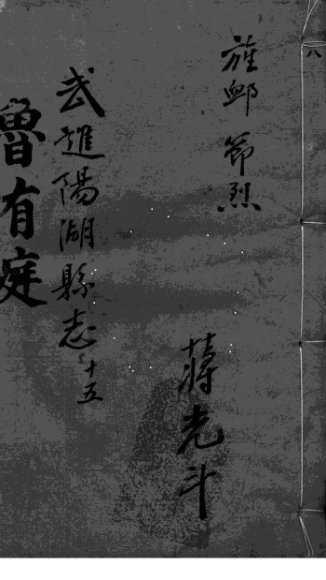 八
旌卹 節烈
蔣光斗
武進陽湖縣志 十五
魯有庭